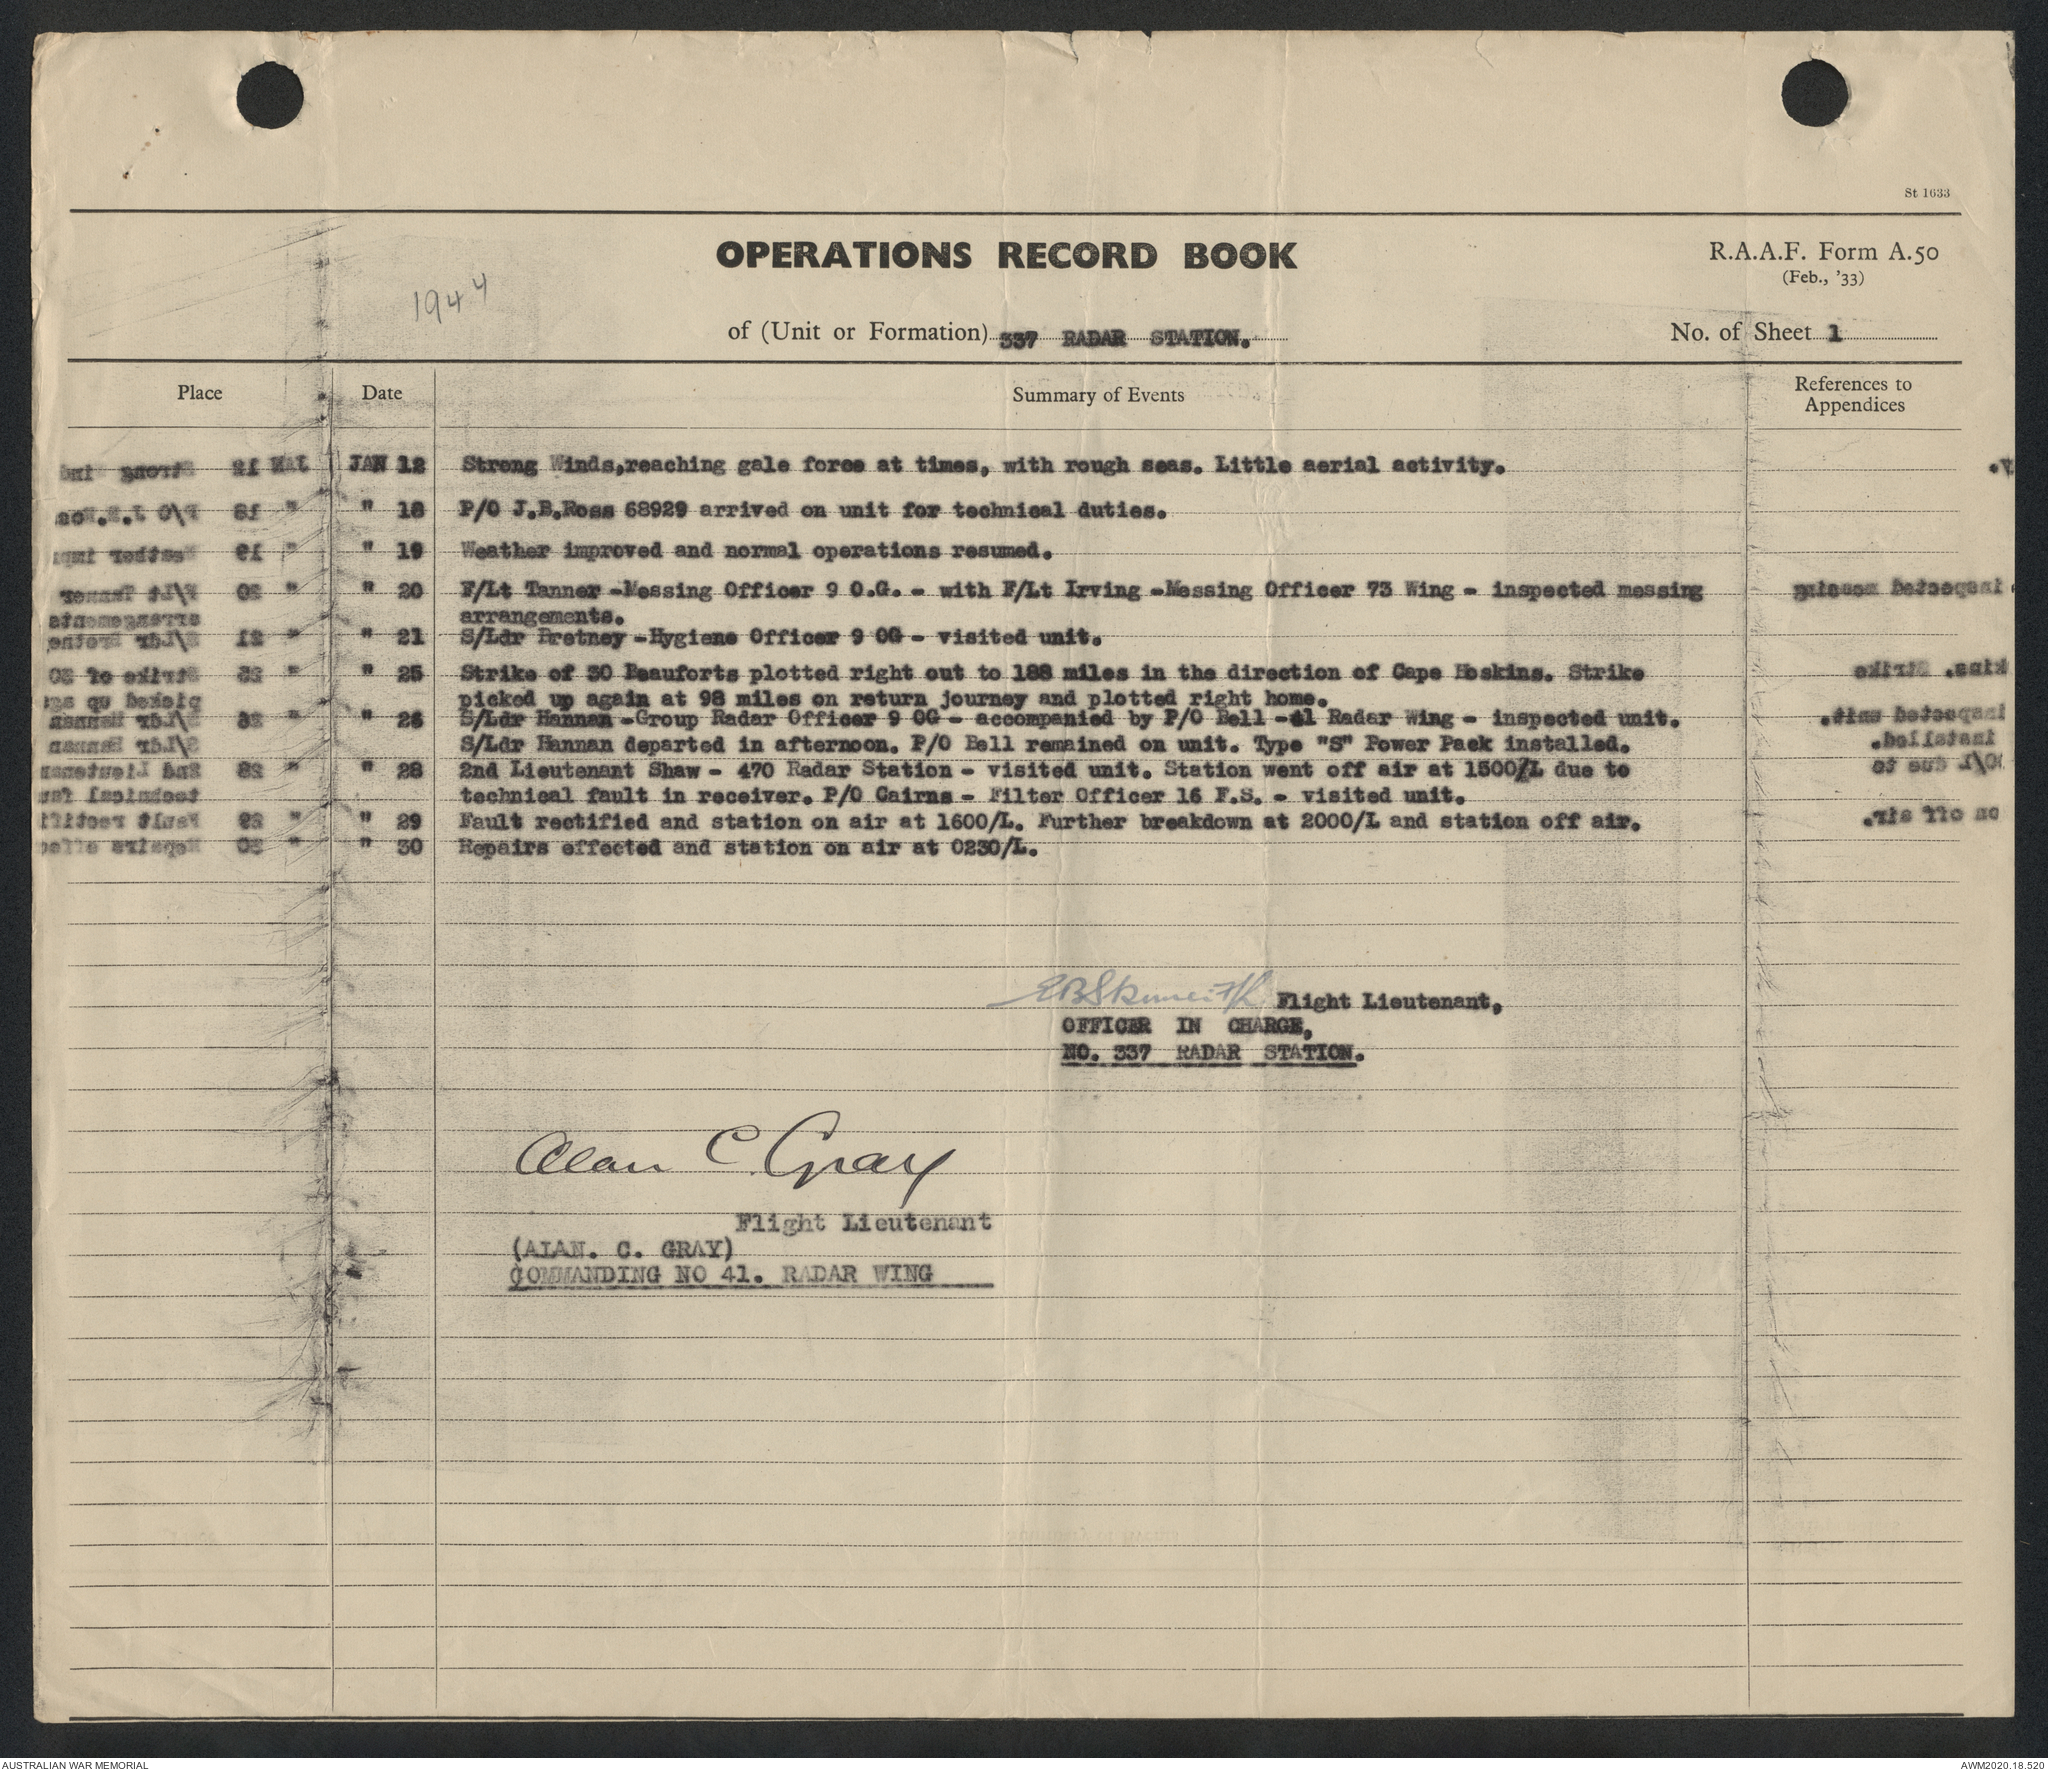 St 1633
OPERATIONS RECORD BOOK
R.A.A.F. Form A.50
(Feb., '33)
1944
of (Unit or Formation) 337 RADAR STATION.
No. of Sheet 1
Place Date Summary of Events References to
Appendices
JAN 12 Strong Winds,reaching gale force at times, with rough seas. Little aerial activity.
" 18 P/O J.B.Ross 68929 arrived on unit for technical duties.
" 19 Weather improved and normal operations resumed.
" 20 F/Lt Tanner -Messing Officer 9 O.G. - with F/Lt Irving -Messing Officer 73 Wing - inspected messing
arrangements.
" 21 S/Ldr Bretney -Hygiene Officer 9 OG - visited unit.
" 25 Strike of 30 Beauforts plotted right out to 188 miles in the direction of Cape Hoskins. Strike
picked up again at 98 miles on return journey and plotted right home.
" 26 S/Ldr Hannan -Group Radar Officer 9 OG - accompanied by P/O Bell -41 Radar Wing - inspected unit.
S/Ldr Hannan departed in afternoon. P/O Bell remained on unit. Type "S" Power Pack installed.
" 28 2nd Lieutenant Shaw - 470 Radar Station - visited unit. Station went off air at 1500/L due to
technical fault in receiver. P/O Cairns - Filter Officer 16 F.S. - visited unit.
" 29 Fault rectified and station on air at 1600/L. Further breakdown at 2000/L and station off air.
" 30 Repairs effected and station on air at 0230/L.
Flight Lieutenant,
OFFICER IN CHARGE,
NO. 337 RADAR STATION.
Alan C. Gray
Flight Lieutenant
(ALAN. C. GRAY)
COMMANDING NO 41. RADAR WING
AUSTRALIAN WAR MEMORIAL
AWM2020.18.520